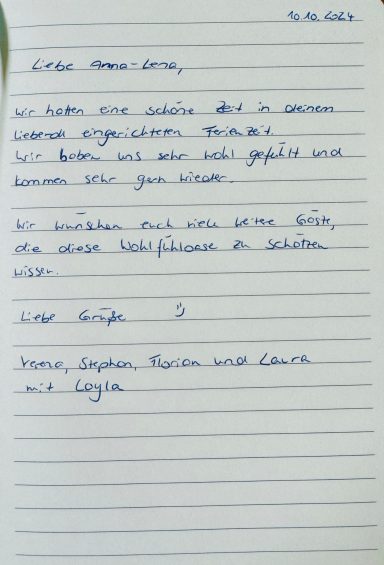 10.10.2024
Liebe Anna-Lena,
wir hatten eine schöne Zeit in deinem
liebevoll eingerichteten Ferienzeit.
Wir haben uns sehr wohl gefühlt und
kommen sehr gern wieder.
Wir wünschen euch viele weitere Gäste,
die diese Wohlfühloase zu schätzen
wissen.
Liebe Grüße :)
Verena, Stephan, Florian und Laura
mit Layla